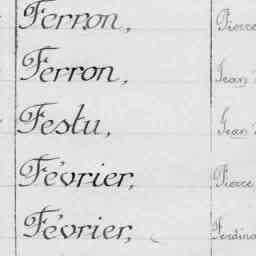 Ferron, Pierre
Ferron, Jean
Festu, Jean
Février, Pierre
Février, Ferdina